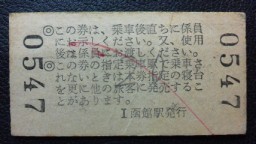 0547
◎この券は、乗車後直ちに係員
にお示しください。又、使用
後は係員にお渡しください。
◎この券の指定乗車駅で乗車さ
れないときは本券指定の寝台
を更に他の旅客に発売するこ
とがあります。
1函館駅発行
0547